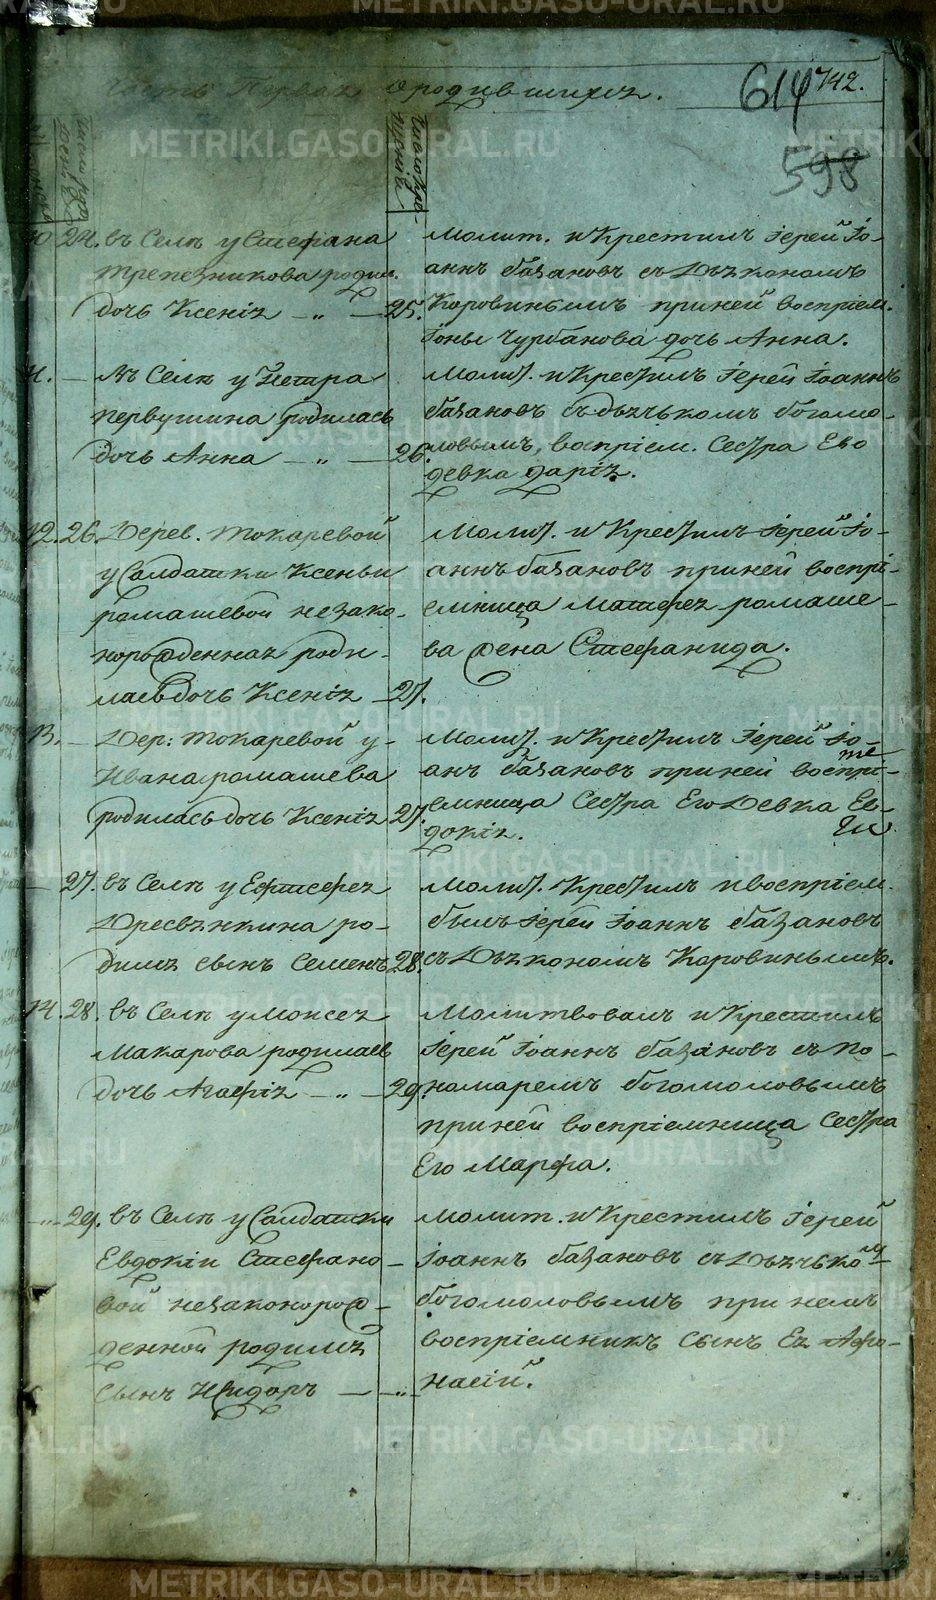 Часть Первая о родившихся.
614 742.
598
Число рож-
дения
Число кре-
щения
10 24. въ Селѣ у Стефана
Трепезникова родил.
дочь Ксенія — „ — 25.
Молит. и Крестилъ Іерей Іо-
аннъ базановъ съ Дьякономъ
Коровинымъ при ней воспріем.
Іоны Чурбанова дочь Анна.
11. — Въ Селѣ у Петра
первушина родилась
дочь Анна — „ — 26.
Молит. и Крестилъ Іерей Іоаннъ
базановъ съ дьячькомъ богомо-
ловымъ, воспріем. Сестра Его
девка дарія.
12. 26. Дерев. Токаревой
у Салдатки Ксеньи
ромашевой незако-
норожденная роди-
лась дочь Ксенія — 27.
Молит. и Крестилъ Іерей Іо-
аннъ базановъ при ней воспрі-
емница Матфея ромаше-
ва жена Стефанида.
13. — Дер: Токаревой у
Ивана ромашева
родилась дочь Ксенія 27.
Молит. и Крестилъ Іерей Іо-
анъ базановъ при ней воспрі-
емница Сестра Его Девка Ев-
докія.
— 27. въ Селѣ у Ефтефея
Дресвянкина ро-
дился сынъ Семенъ 28.
Молит. Крестилъ и воспріем.
былъ Іерей Іоаннъ базановъ
съ Дьякономъ Коровинымъ.
14. 28. въ Селѣ у Моисея
Макарова родилась
дочь Агафія — „ — 29.
Молитвовалъ и Крестилъ
Іерей Іоаннъ базановъ съ по-
намаремъ богомоловымъ
при ней воспріемница Сестра
Его Марфа.
— „ — 29. въ Селѣ у Салдатки
Евдокіи Стефано-
вой незаконорож-
денной родился
сынъ Исидоръ — „ —
Молит. и Крестилъ Іерей
Іоаннъ базановъ съ Дьячько᷍м
богомоловымъ при немъ
воспріемникъ сынъ Ея Афо-
насій.
METRIKI.GASO-URAL.RU